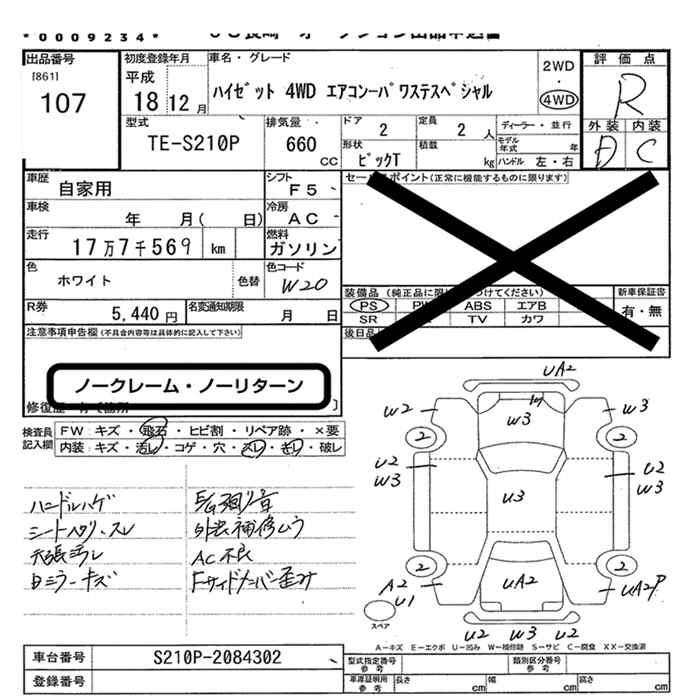 *0009234*
出品番号
[861]
107
初度登録年月
平成
18 12月
車名・グレード
ハイゼット 4WD エアコンパワステスペシャル
2WD
・
4WD
評価点
R
外装 内装
D C
型式
TE-S210P
排気量
660
cc
ドア
2
定員
2 人
ディーラー・並行
モデル年式 年
形状
ピックT
積載
kg
ハンドル 左・右
車歴
自家用
シフト
F5
車検
年 月( 日)
冷房
AC
走行
17万7千569 km
燃料
ガソリン
色
ホワイト
色替
色コード
W20
R券
5,440 円
名変通知期限
月 日
セールスポイント(正常に機能するものに限ります)
装備品
PS ABS エアB
SR TV カワ
新車保証書
有・無
後日品
注意事項申告欄(不具合内容等は具体的に記入して下さい)
ノークレーム・ノーリターン
検査員記入欄
FW:キズ・飛石・ヒビ割・リペア跡・×要
内装:キズ・汚レ・コゲ・穴・スレ・キレ・破レ
ハンドルハゲ
シートヘタリ、スレ
天張汚レ
Bミラーキズ
E/G廻り音
外装補修ムラ
AC不良
Fサイドメンバー歪み
UA2
W2 W3 W3
2 2
U2 W3 U3 U2 W3
2 2
A2 U1 UA2 UA2P
U2 W3 U2
スペア
A-キズ E-エクボ U-凹み W-補修跡 S-サビ C-腐食 XX-交換済
車台番号
S210P-2084302
登録番号
型式指定番号 参考
類別区分番号 参考
車庫証明用 参考
長さ cm
幅 cm
高さ cm